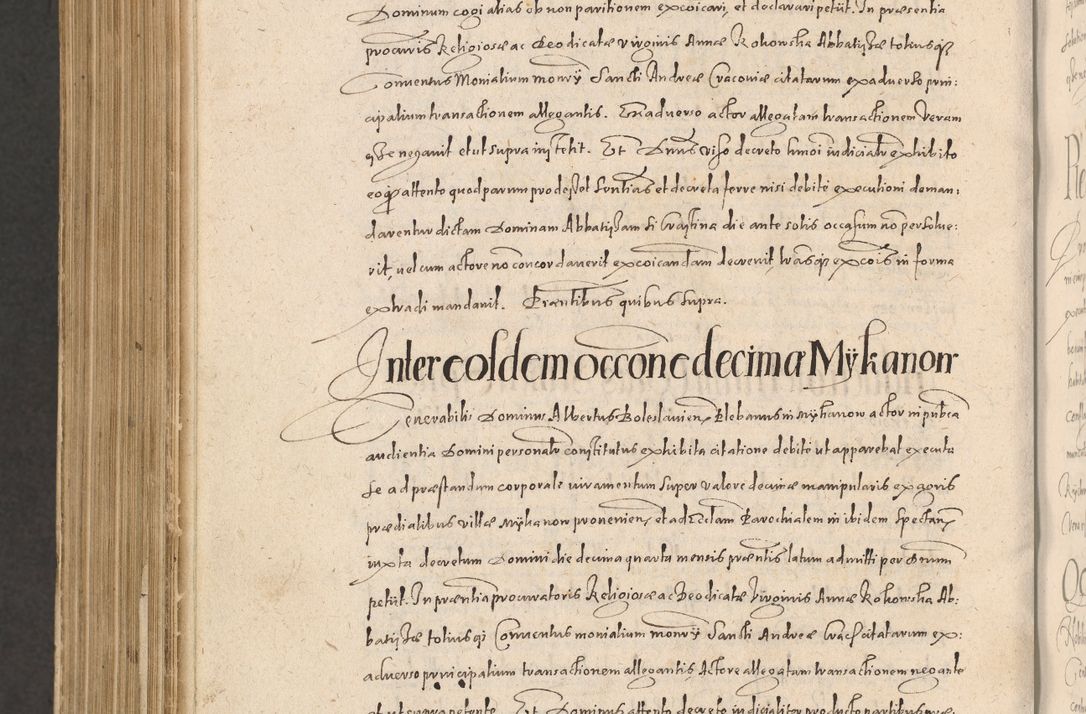 Dominum cogi alias ob non paritionem excoicari, et declarari petiit. In præsentia
procuris Religiosæ ac Deo dicatæ virginis Annæ Kokowska Abbatissæ totiusq
Conventus Monialium monrÿ Sancti Andreæ Cracoviæ citatarum ex adverso prin:
cipalium transactionem allegantis. Ex adverso actor allegatam transactionem veram
esse negavit et ut supra institit. Et Dnus viso decreto hmoi iudicialr exhibito
eoq attento quod parum prodesset Sentias et decreta ferre nisi debitè executioni deman:
darentur dictam Dominam Abbatissam si Crastina die ante solis occasum nō persolve:
rit, vel cum actore nō concordaverit excoicandam decrevit lrasq excois in forma
extradi mandavit. Præntibus quibus supra.
Inter eosdem occone decima Mÿkanow
Venerabilis Dominus Albertus Boleslavien Plebanus in Mÿkanow actor in pubca
audientia Domini personalr constitutus exhibita citatione debitè ut apparebat executa
se ad præstandum corporale iuramentum super valore decimæ manipularis ex agris
prædialibus villæ Mÿkanow provenien, et ad Ecclam Parochialem in ibidem spectan
iuxta decretum Domini die decima quarta mensis præntis latum admitti per Dnum
petiit. In præntia procuratoris Religiosæ ac Deo dicatæ Virginis Annæ Kokowska Ab:
batissæ totiusq Conventus monialium monrÿ Sancti Andreæ Crac citatarum ex:
adverso principalium transactionem allegantis Actore allegatam transactionem negante
et ut supra petente. Et Dominus attento decreto iudicialiter producto partibusquæ